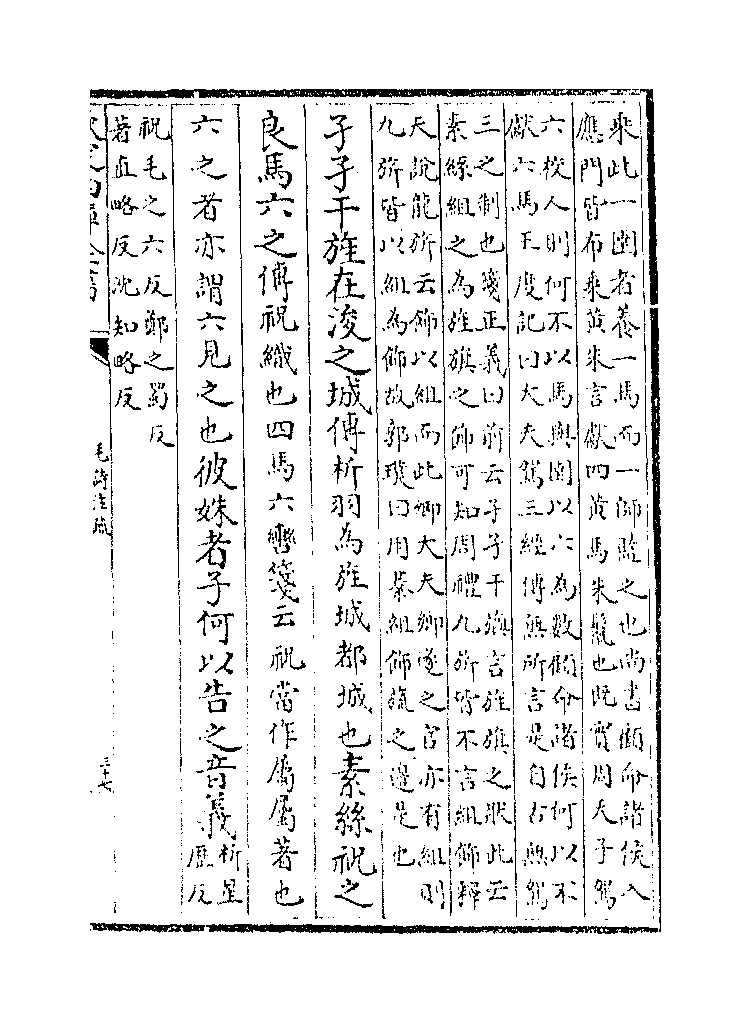 乘此一圉者養一馬而一師監之也尚書顧命諸侯入
應門皆布乘黃朱言獻四黃馬朱鬛也既實周天子駕
六校人則何不以馬與圉以六為數顧命諸侯何以不
獻六馬王度記曰大夫駕三經傳無所言是自古無駕
三之制也箋正義曰前云孑孑干旟言旌旗之狀此云
素絲組之為旌旗之飾可知周禮九旂皆不言組飾釋
天說龍旂云飾以組而此卿大夫鄉遂之官亦有組則
九旂皆以組為飾故郭璞曰用綦組飾旒之邊是也
孑孑干旌在浚之城傳析羽為旌城都城也素絲祝之
良馬六之傳祝織也四馬六轡箋云祝當作屬屬著也
六之者亦謂六見之也彼姝者子何以告之音義析星
歷反
祝毛之六反鄭之蜀反
著直略反沈知略反
欽定四庫全書
毛詩注疏
三十七